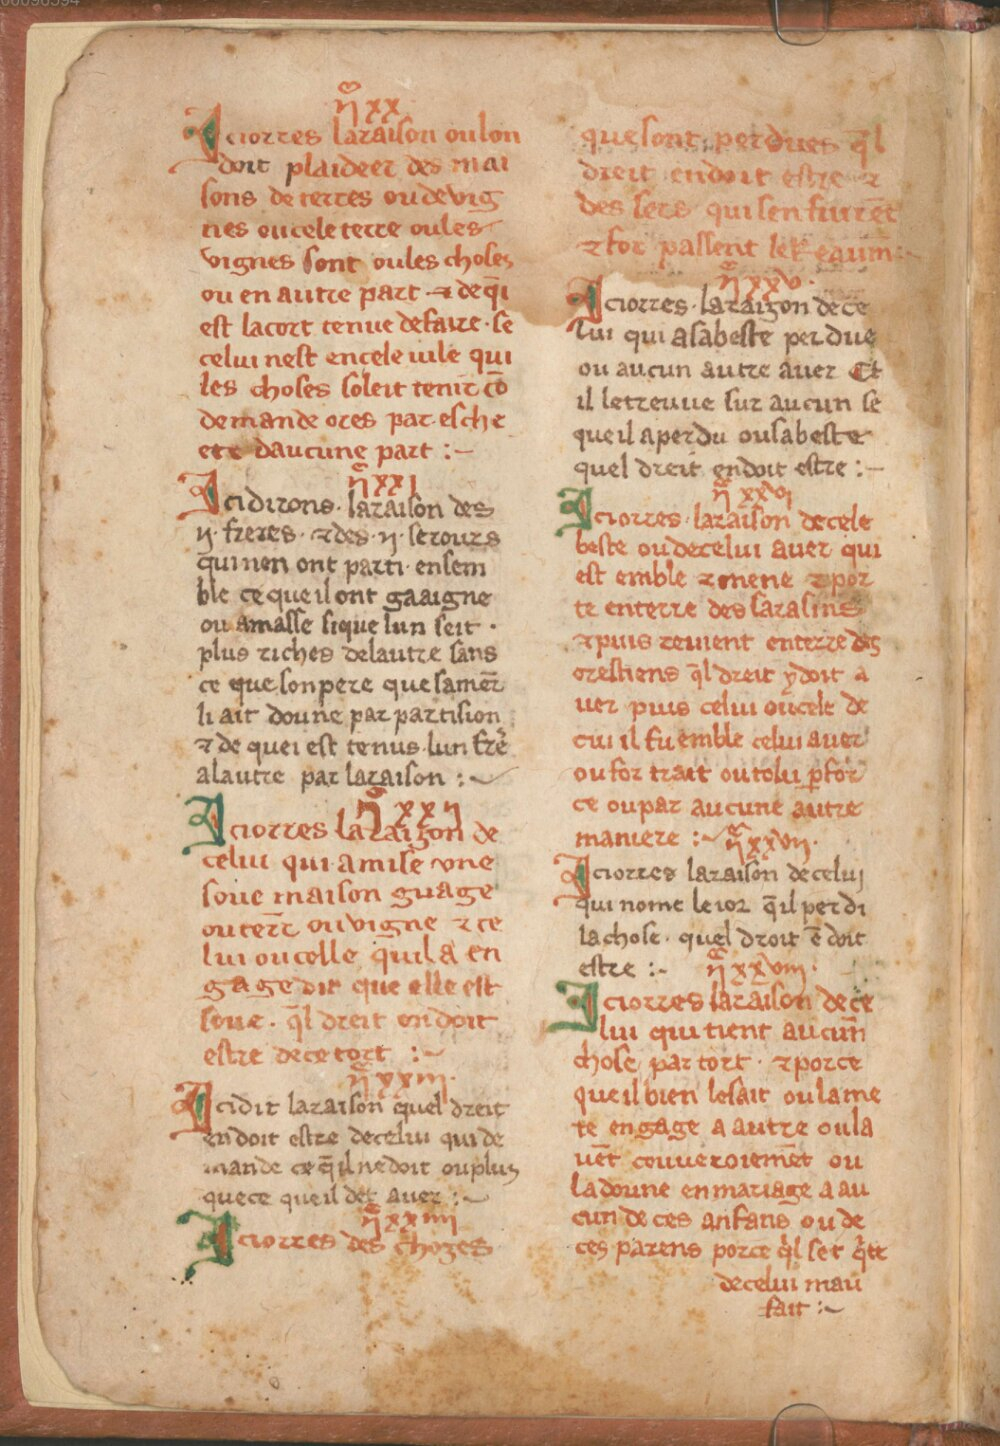 q̃ xx
Iciorres laraison ou lon
doit plaideer des mai
sons de terres ou de vig
nes ou cele terre ou les
vignes sont ou les choses
ou en autre part ⁊ de q̃i
est la cort tenue de faire · se
celui nest en cele uile qui
les choses soleit tenir cō
demande ores par esche
ete daucune part :~
q̃ xxi
Icidirons · laraison des
ij · freres · ⁊ des · ij · serours
qui nen ont parti · ensem
ble ce que il ont gaaigne
ou amasse si que lun seit ·
plus riches de lautre sans
ce que son pere que sa mer̄
li ait doune par partision
⁊ de quei est tenus · lun frē
a lautre par laraison :~
q̃ xxij
Iciorres la raizon de
celui qui a mise vne
soue maison guage
ou terr̄ ou vigne ⁊ ce
lui ou celle qui la en
gage dit que elle est
soue · q̄l dreit en doit
estre de ce tort :~
q̃ xxiij ·
Icidit laraison quel dreit
en doit estre de celui qui de
mande ce q̄ il ne doit ou plus
que ce que il det auer :~
q̃ xxiiij
Iciorres des chozes
que sont perdues q̄l
dreit en doit estre ⁊
des sers qui sen fuirēt
⁊ for passent le Reaum̄
q̃ xxv ·
Iciorres · la raizon de ce
lui qui a sa beste perdue
ou aucun autre auer Et
il le treuue sur aucun se
que il a perdu ou sa beste
quel dreit en doit estre :~
q̃ xxvi
Iciorres · laraison de cele
beste ou de celui auer qui
est emble ⁊ mene ⁊ por
te en terre des sarasins
⁊ puis reuient en terre des
crestiens q̄l dreit y doit a
uer puis celui ou cele de
cui il fu emble celui auer
ou for trait ou tolu ꝑ for
ce ou par aucune autre
maniere :~ q̃ xxvij ·
Iciorres laraison de celui
qui nome le ior q̄ il perdi
la chose · quel droit ē doit
estre :~ q̃ xxviij ·
Iciorres laraison de ce
lui qui tient aucun̄
chose par tort · ⁊ por ce
que il bien le sait ou la me
te engage a autre ou la
uēt couueroiemēt ou
la doune en mariage a au
cun de ces anfans ou de
ces parens por ce q̄l set q̄te
de celui mau
fait :~